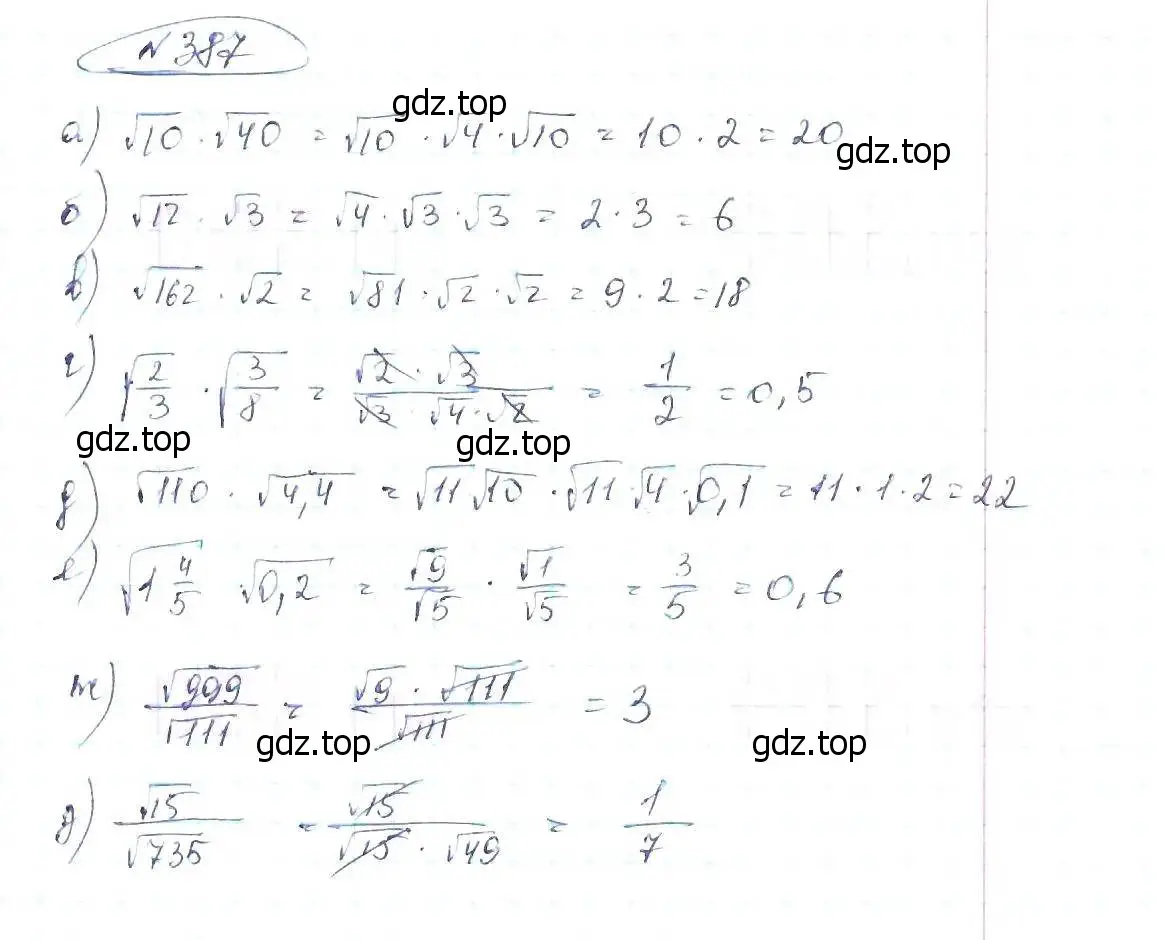 N 387
gdz.top
а) √10 · √40 = √10 · √4 · √10 = 10 · 2 = 20
gdz.top
б) √12 · √3 = √4 · √3 · √3 = 2 · 3 = 6
в) √162 · √2 = √81 · √2 · √2 = 9 · 2 = 18
г) √(2/3) · √(3/8) = (√2 · √3)/(√3 · √4 · √2) = 1/2 = 0,5
gdz.top gdz.top
д) √110 · √4,4 = √11 √10 · √11 · √4 · √0,1 = 11 · 1 · 2 = 22
е) √(1 4/5) √0,2 = √9/√5 · √1/√5 = 3/5 = 0,6
ж) √999/√111 = (√9 · √111)/√111 = 3
gdz.top gdz.top
з) √15/√735 = √15/(√15 · √49) = 1/7